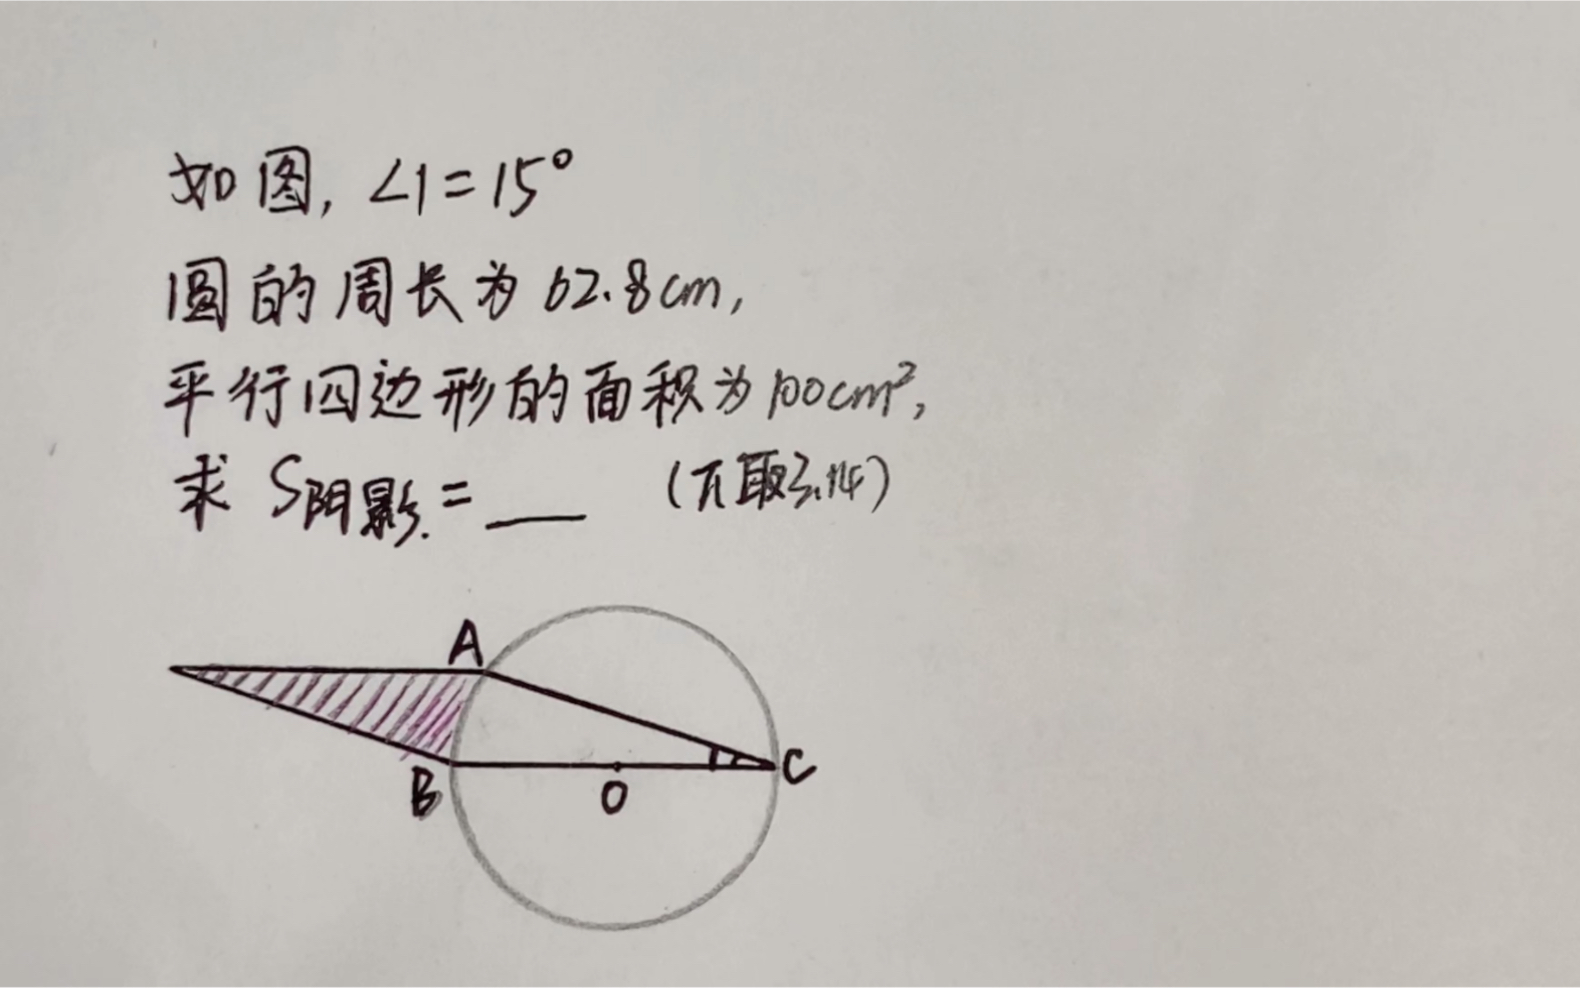 如图, ∠1=15°
圆的周长为62.8cm,
平行四边形的面积为100cm²,
求 S阴影.=___ (π取3.14)
A
B
O
C